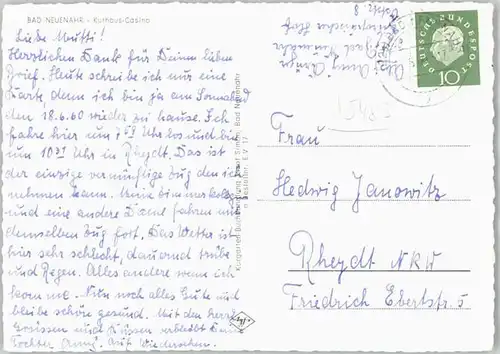 BAD NEUENAHR - Kurhaus-Casino
Liebe Mutti!
Herzlichen Dank für Deinen lieben
Brief. Heute schreibe ich nur eine
Karte, denn ich bin ja am Sonnabend
den 18.6.60 wieder zu Hause. Ich
fahre hier um Uhr los und bin
um Uhr in Rheydt. Das ist
der einzige vernünftige Zug den ich
nehmen kann.
und eine andere Dame fahren mit
demselben Zug fort. Das Wetter ist
hier sehr schlecht, dauernd trübe
und Regen. Alles andere wenn ich
komme. Nun noch alles Gute und
bleibe schön gesund. Mit den herzl.
Grüssen und Küssen verbleibt Deine
Tochter Anny. Auf Wiedersehen.
Bad Neuenahr
DEUTSCHE BUNDESPOST
10
Frau
Hedwig Janowitz
Rheydt NRW
Friedrich Ebertstr. 5